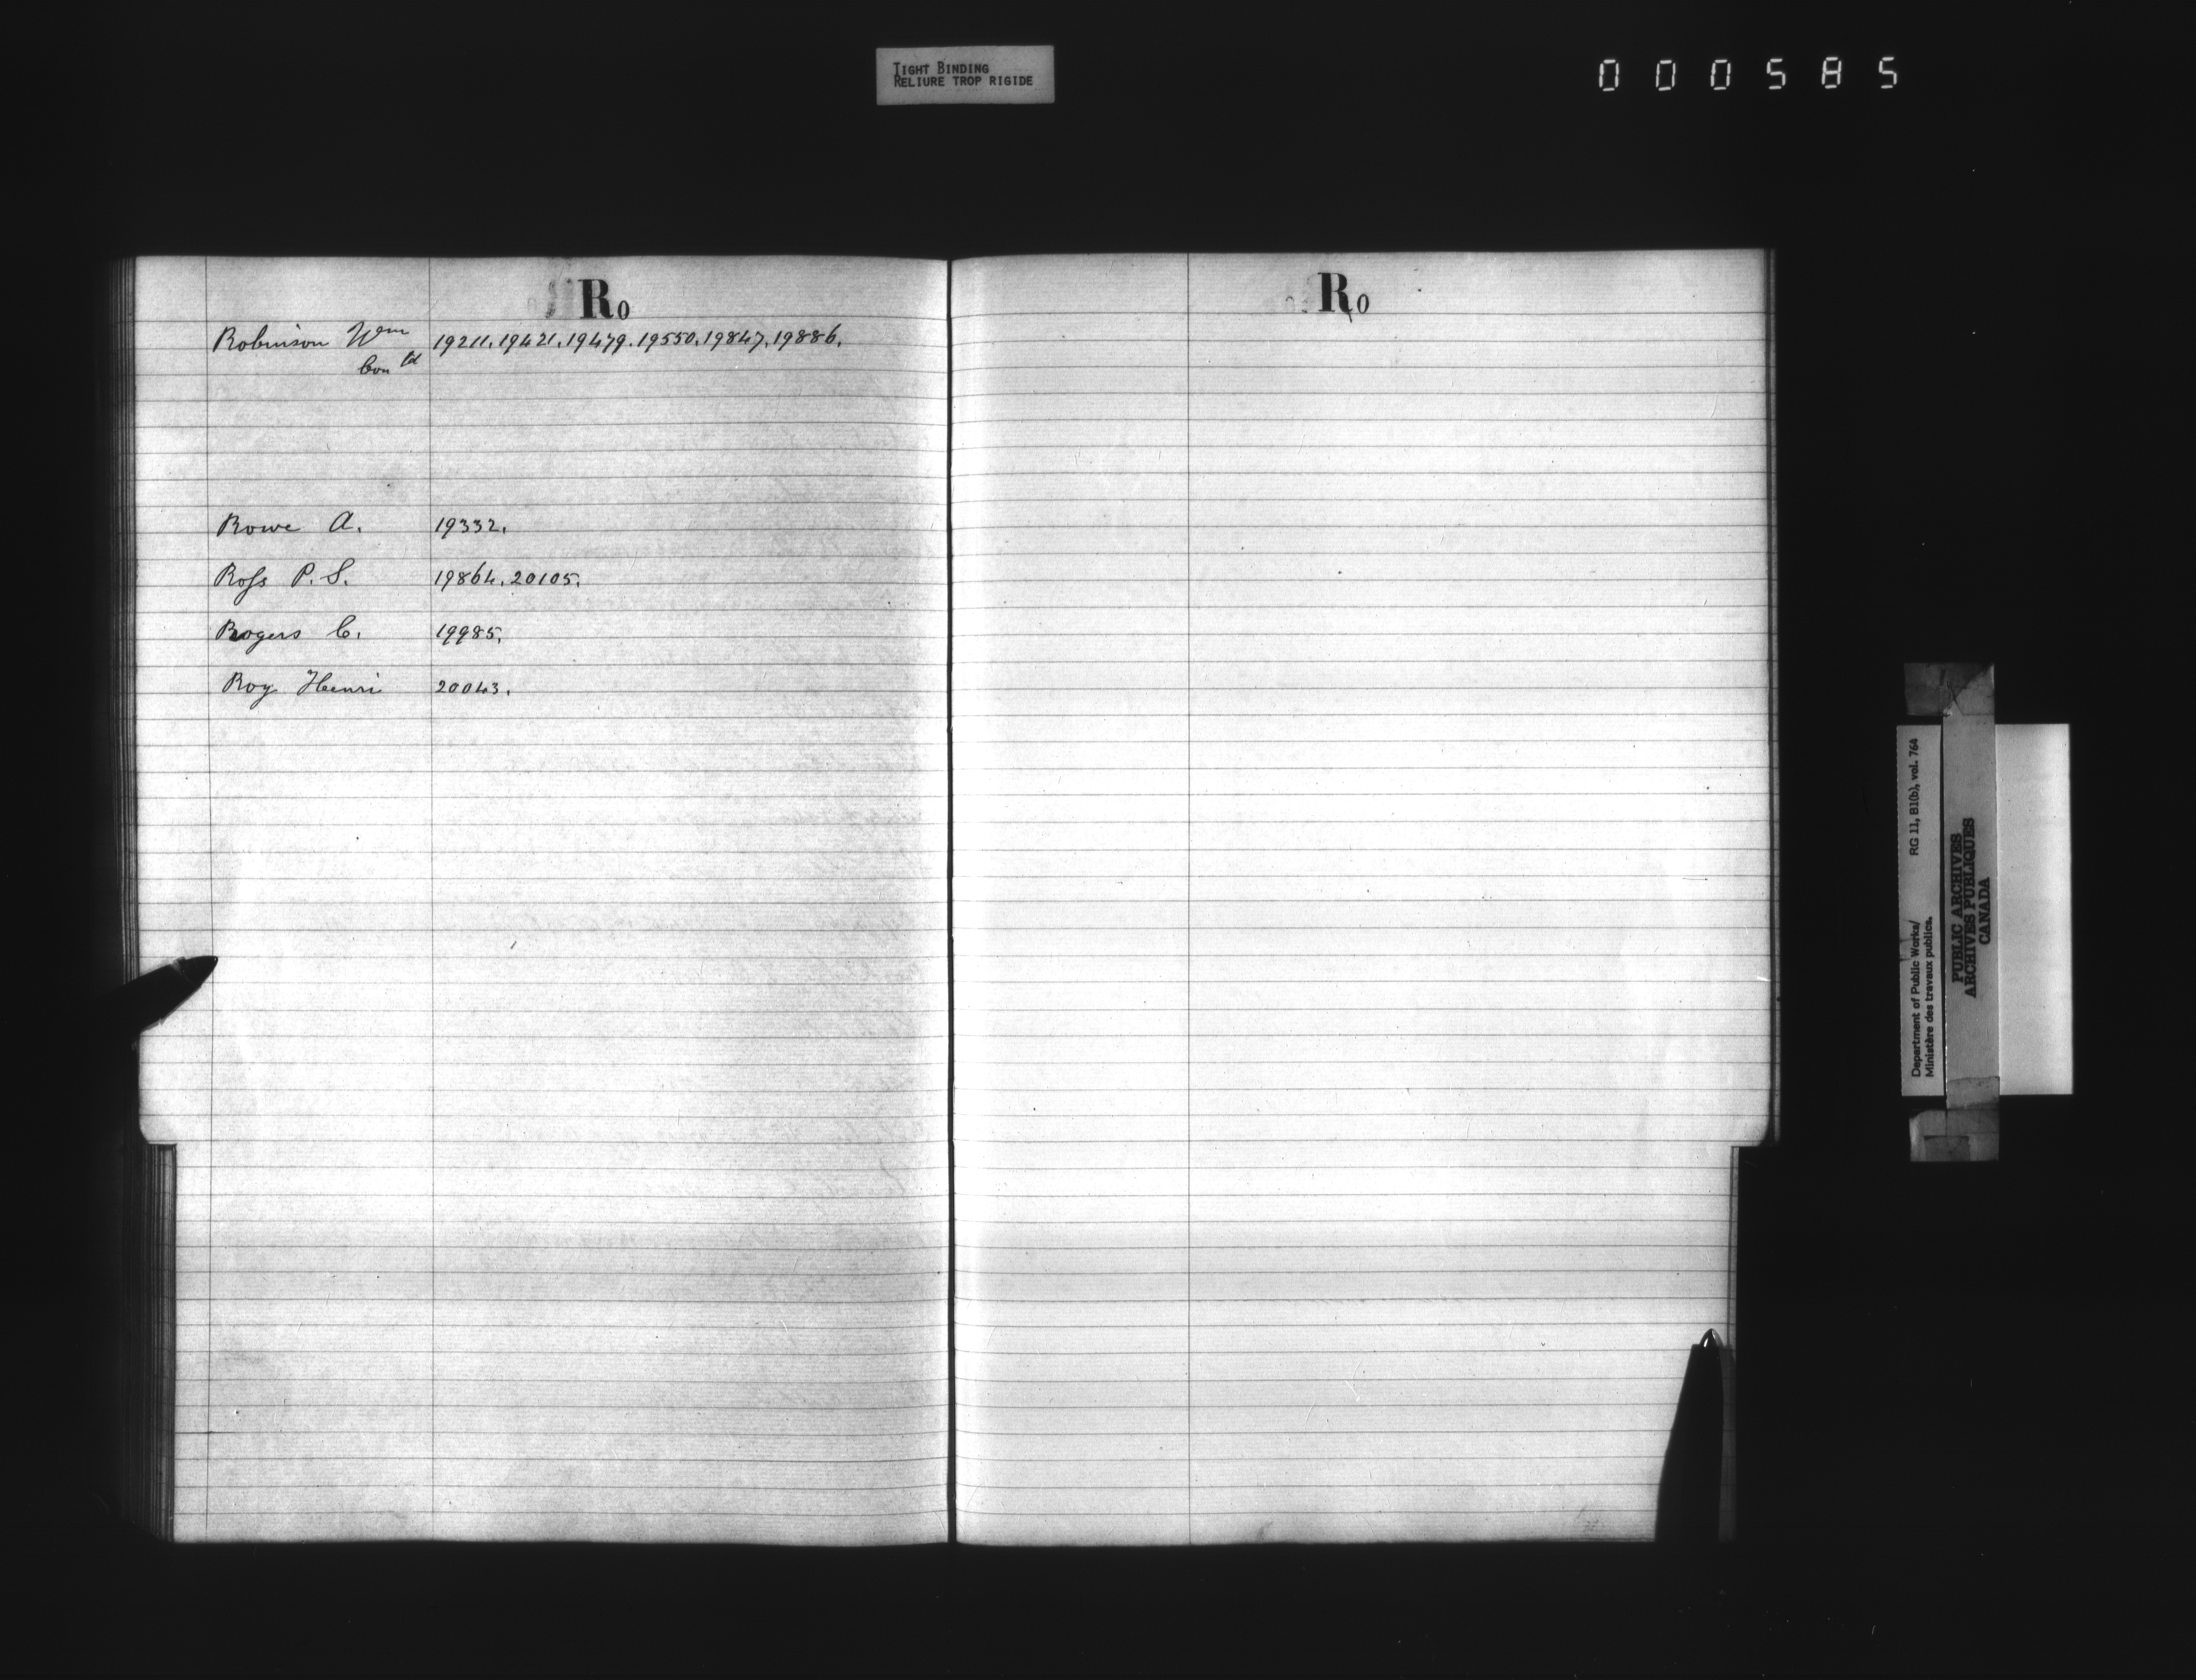 TIGHT BINDING
RELIURE TROP RIGIDE
000585
Ro
Robinson Wm 19211. 19421. 19479. 19550. 19847. 19886.
Contd
Rowe A. 19332.
Ross P. S. 19864. 20105.
Rogers C. 19985.
Roy Henri 20043.
Ro
Department of Public Works/ RG 11, B1(b), vol. 764
Ministère des travaux publics.
PUBLIC ARCHIVES
ARCHIVES PUBLIQUES
CANADA